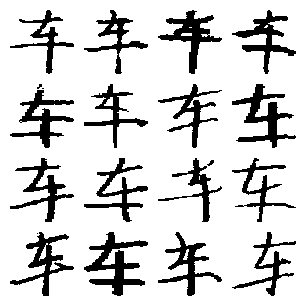 车车车车
车车车车
车车车车
车车车车